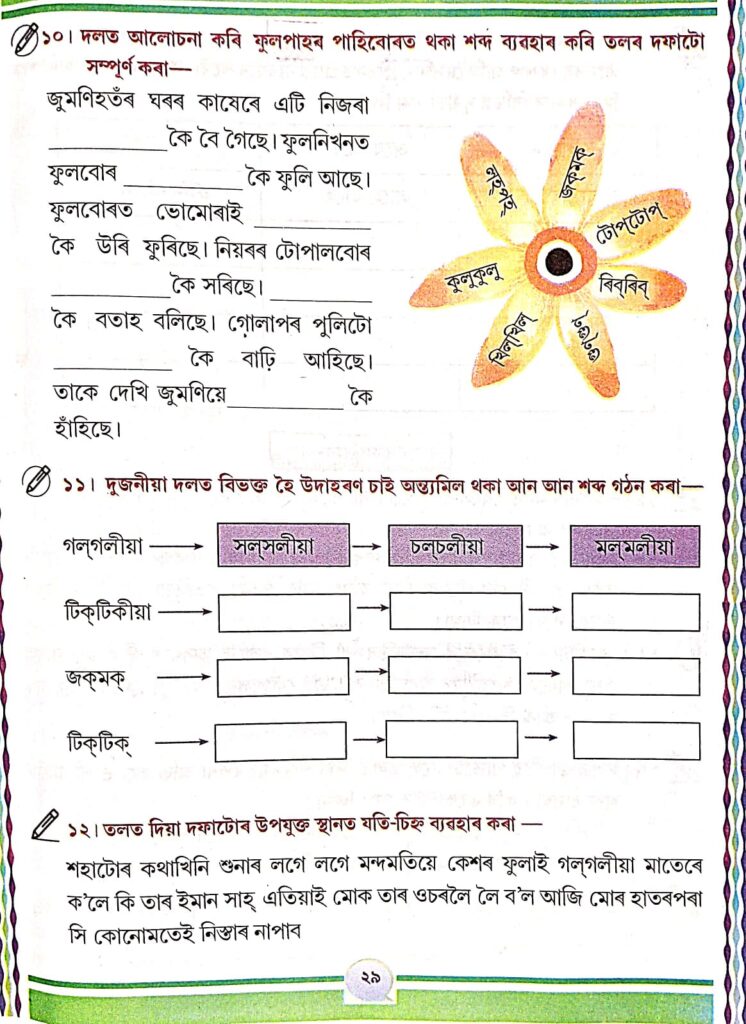 ১০। দলত আলোচনা কৰি ফুলপাহৰ পাহিবোৰত থকা শব্দ ব্যৱহাৰ কৰি তলৰ দফাটো
সম্পূৰ্ণ কৰা—
জুমণিহতঁৰ ঘৰৰ কাষেৰে এটি নিজৰা
__________ কৈ বৈ গৈছে। ফুলনিখনত
ফুলবোৰ __________ কৈ ফুলি আছে।
ফুলবোৰত ভোমোৰাই __________
কৈ উৰি ফুৰিছে। নিয়ৰৰ টোপালবোৰ
__________ কৈ সৰিছে। __________
কৈ বতাহ বলিছে। গোলাপৰ পুলিটো
__________ কৈ বাঢ়ি আহিছে।
তাকে দেখি জুমণিয়ে __________ কৈ
হাঁহিছে।
লহ্‌পহ্
জক্‌মক্
টোপ্‌টোপ্
ৰিব্‌ৰিব্
খিল্‌খিল্
কুলুকুলু
১১। দুজনীয়া দলত বিভক্ত হৈ উদাহৰণ চাই অন্ত্যমিল থকা আন আন শব্দ গঠন কৰা—
গল্‌গলীয়া → সল্‌সলীয়া → চল্‌চলীয়া → মল্‌মলীয়া
টিক্‌টিকীয়া
জক্‌মক্
টিক্‌টিক্
১২। তলত দিয়া দফাটোৰ উপযুক্ত স্থানত যতি-চিহ্ন ব্যৱহাৰ কৰা —
শহাটোৰ কথাখিনি শুনাৰ লগে লগে মন্দমতিয়ে কেশৰ ফুলাই গল্‌গলীয়া মাতেৰে
ক'লে কি তাৰ ইমান সাহ্ এতিয়াই মোক তাৰ ওচৰলৈ লৈ ব'ল আজি মোৰ হাতৰপৰা
সি কোনোমতেই নিস্তাৰ নাপাব
২৯